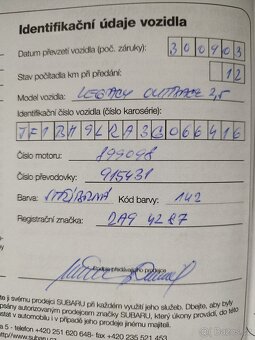 Identifikační údaje vozidla
Datum převzetí vozidla (poč. záruky): 300903
Stav počítadla km při předání: 12
Model vozidla: LEGACY OUTBACK 2,5
Identifikační číslo vozidla (číslo karosérie):
JF1BH9LRA3G066416
Číslo motoru: 899098
Číslo převodovky: 915431
Barva: STŘÍBRNÁ Kód barvy: 142
Registrační značka: 2A9 4287
Podpis předávajícího prodejce
ti svému prodejci SUBARU při každém využití jeho služeb. Dbejte, aby byly
autorizovaným prodejcem značky SUBARU, který úkony provádí, do této
stat v automobilu i v případě jeho prodeje jinému majiteli.
a 5 - telefon +420 251 620 648- fax +420 235 521 453
http://www.subaru